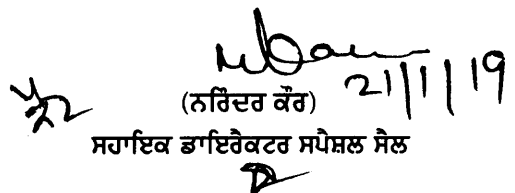 21/1/19
(ਨਰਿੰਦਰ ਕੌਰ)
ਸਹਾਇਕ ਡਾਇਰੈਕਟਰ ਸਪੈਸ਼ਲ ਸੈਲ